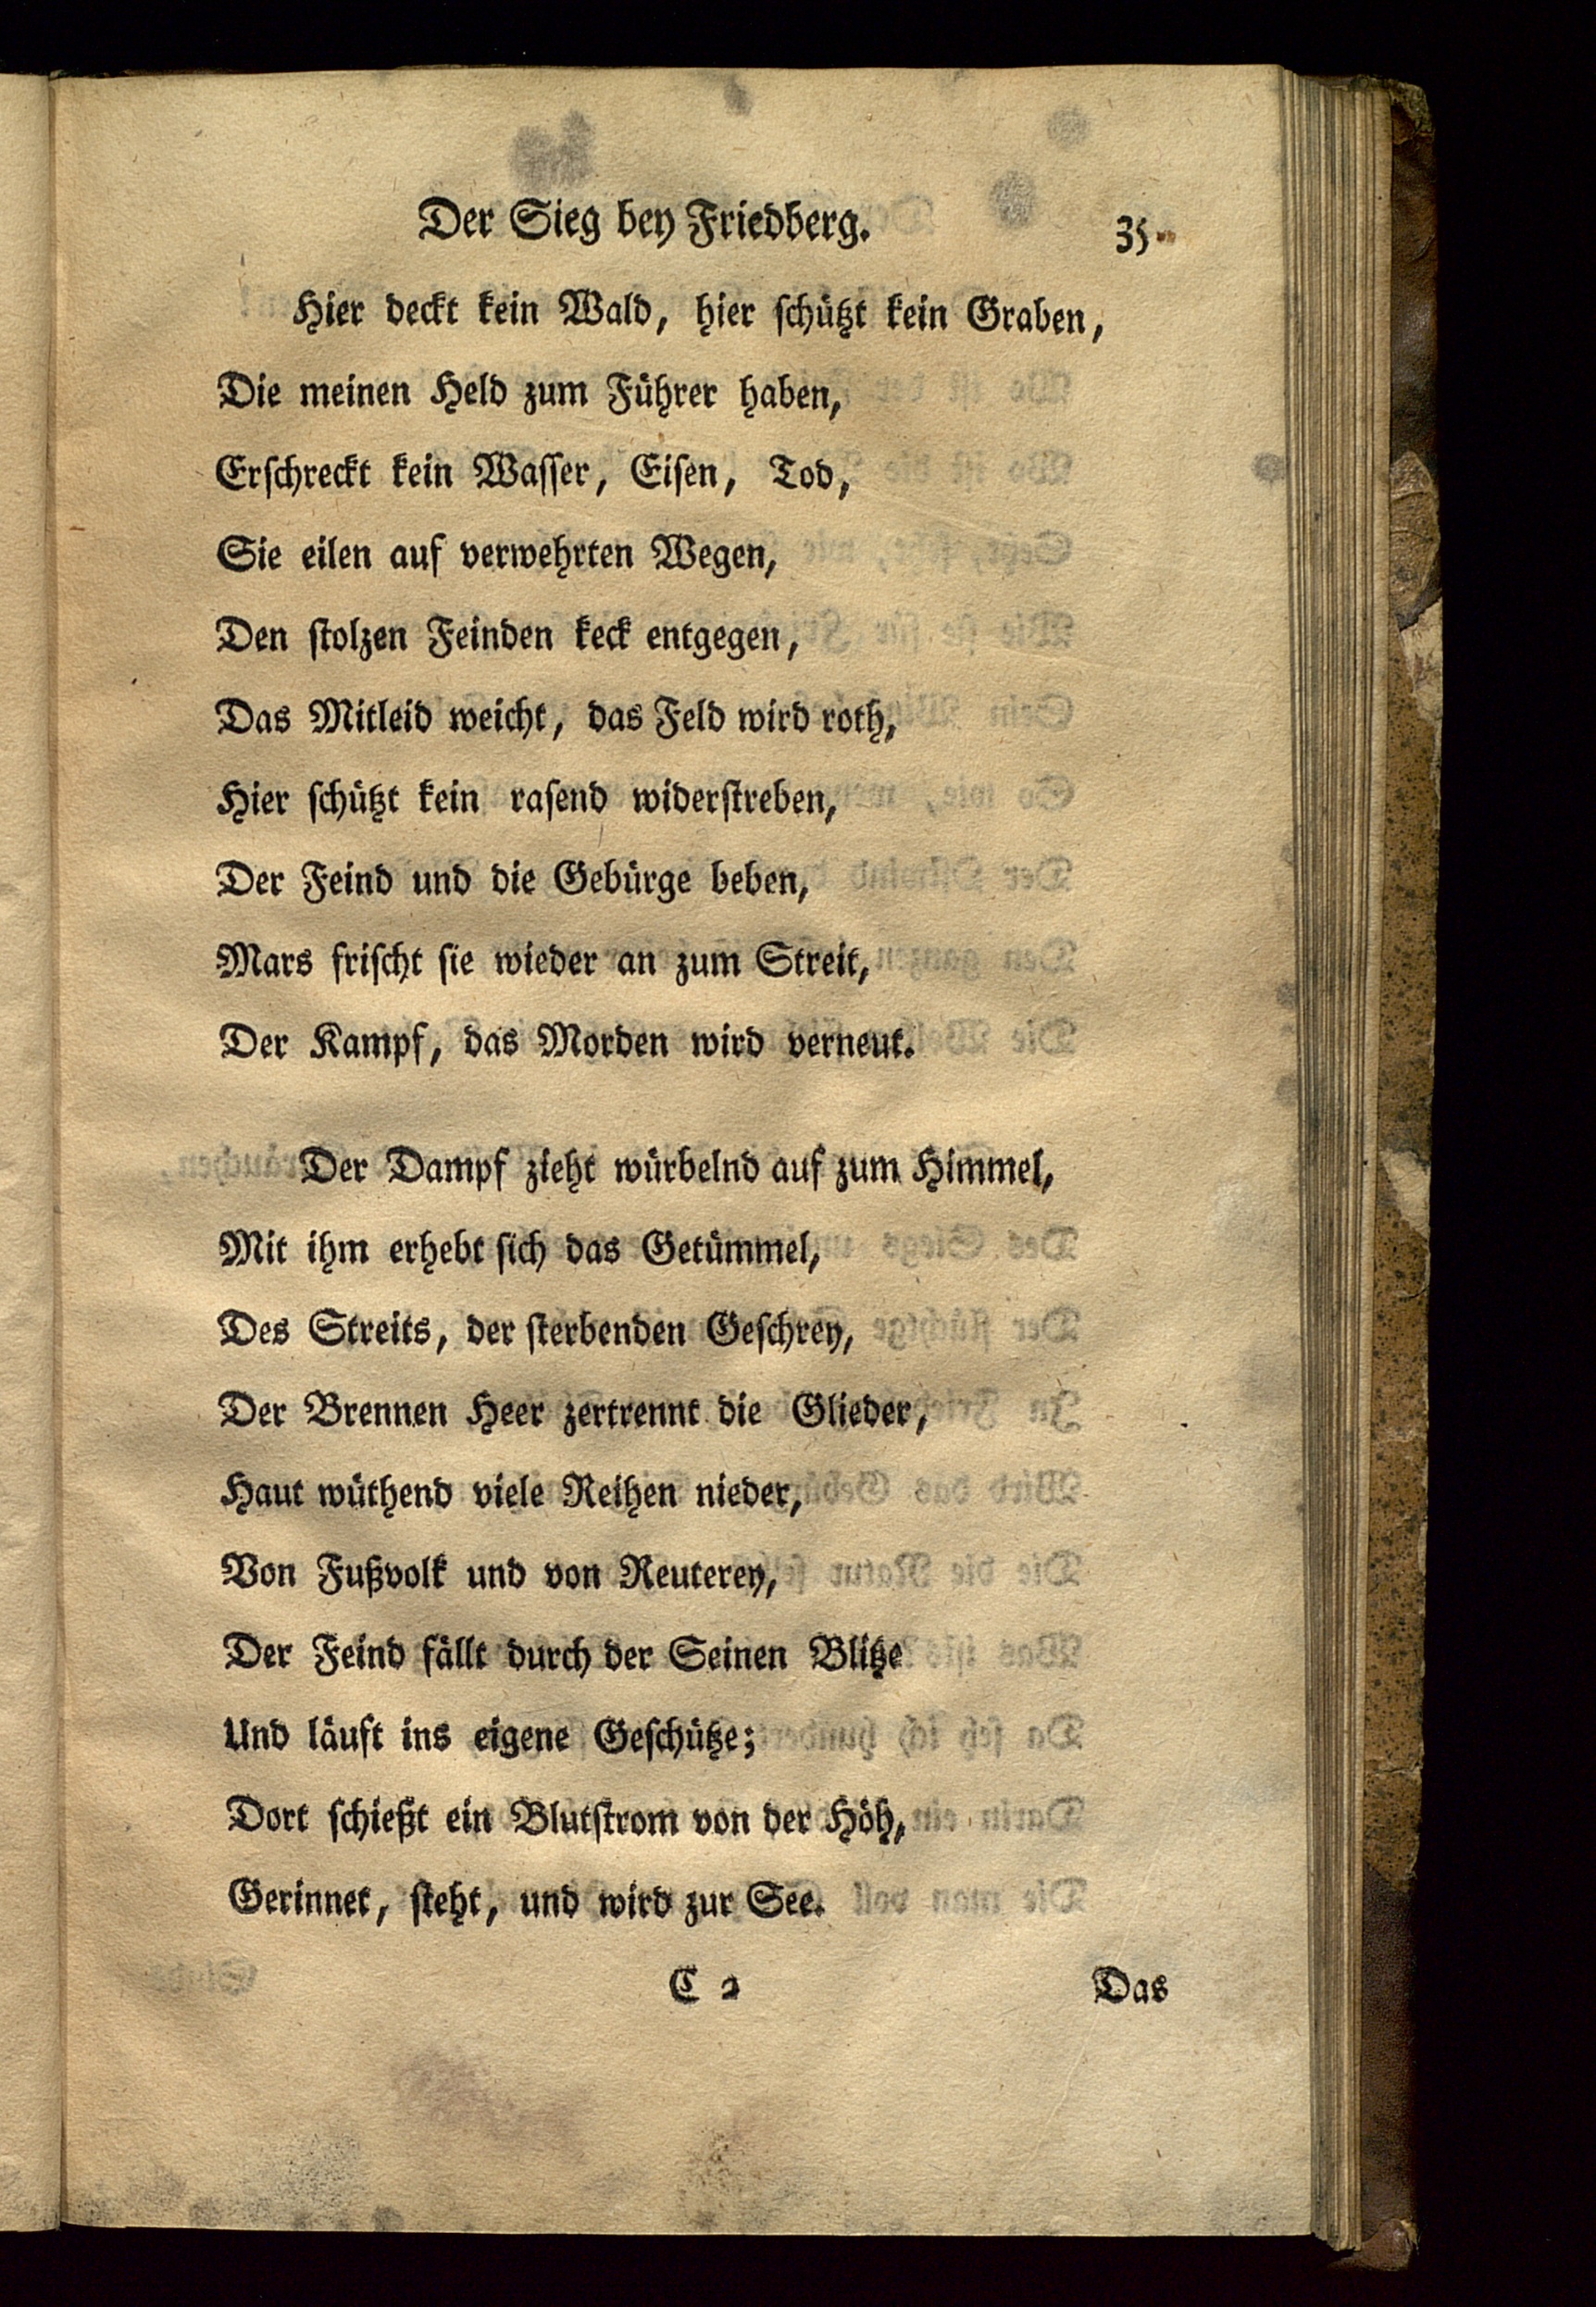 Der Sieg bey Friedberg. 35
Hier deckt kein Wald, hier ſchützt kein Graben,
Die meinen Held zum Führer haben,
Erſchreckt kein Waſſer, Eiſen, Tod,
Sie eilen auf verwehrten Wegen,
Den ſtolzen Feinden keck entgegen,
Das Mitleid weicht, das Feld wird roth,
Hier ſchützt kein raſend widerſtreben,
Der Feind und die Gebürge beben,
Mars friſcht ſie wieder an zum Streit,
Der Kampf, das Morden wird verneut.
Der Dampf zieht würbelnd auf zum Himmel,
Mit ihm erhebt ſich das Getümmel,
Des Streits, der ſterbenden Geſchrey,
Der Brennen Heer zertrennt die Glieder,
Haut wüthend viele Reihen nieder,
Von Fußvolk und von Reuterey,
Der Feind fällt durch der Seinen Blitze
Und läuft ins eigene Geſchütze;
Dort ſchießt ein Blutſtrom von der Höh,
Gerinnet, ſteht, und wird zur See.
C 2 Das